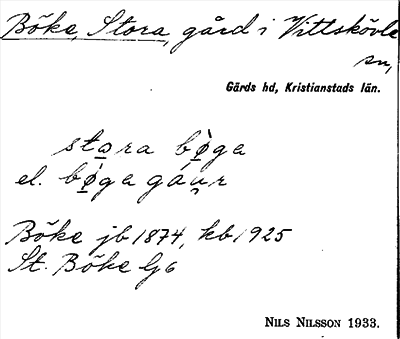 Böke, Stora, gård i Vittskövle
sn,
Gärds hd, Kristianstads län.
stora bø̀ga
el. bø̀ga gáu̯r
Böke jb 1874, kb 1925
St. Böke G6
NILS NILSSON 1933.